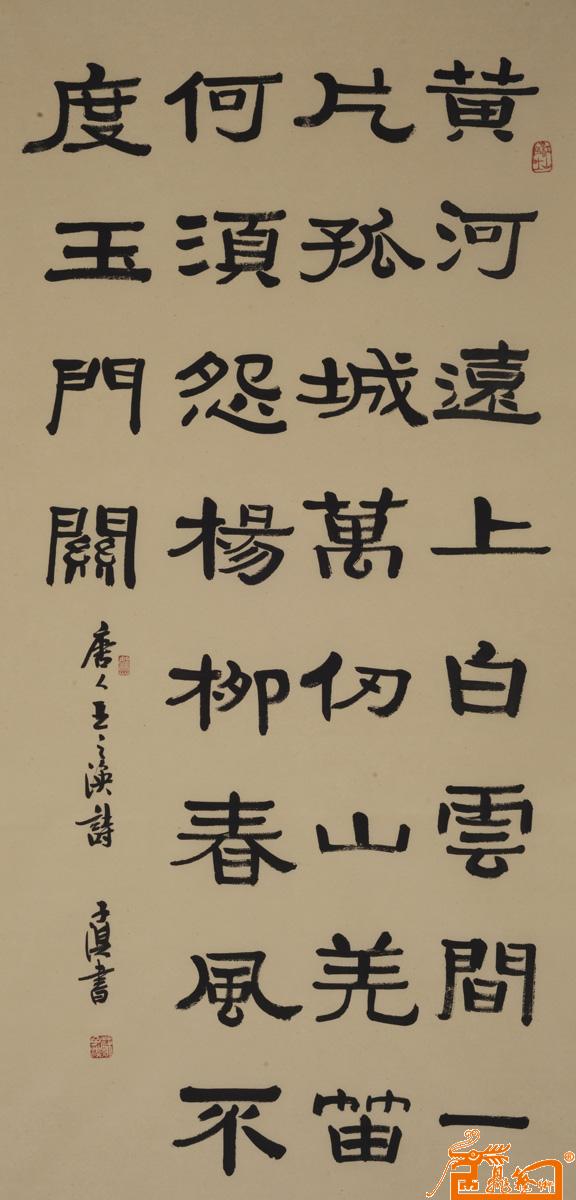 黄河遠上白雲間一
片孤城萬仞山羌笛
何須怨楊柳春風不
度玉門關
唐人王之渙詩 子淏書